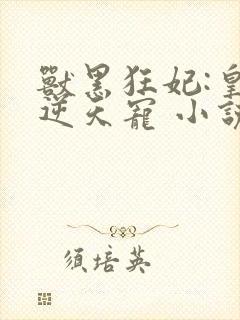 獸黑狂妃:皇
逆天寵 小說
須培英